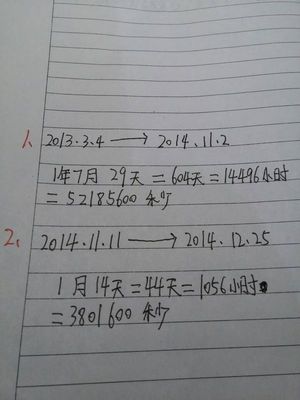 1、2013.3.4 → 2014.11.2
1年7月 29天 = 604天 = 14496小时
= 52185600 秒
2、2014.11.11 → 2014.12.25
1月14天 = 44天 = 1056小时
= 3801600 秒